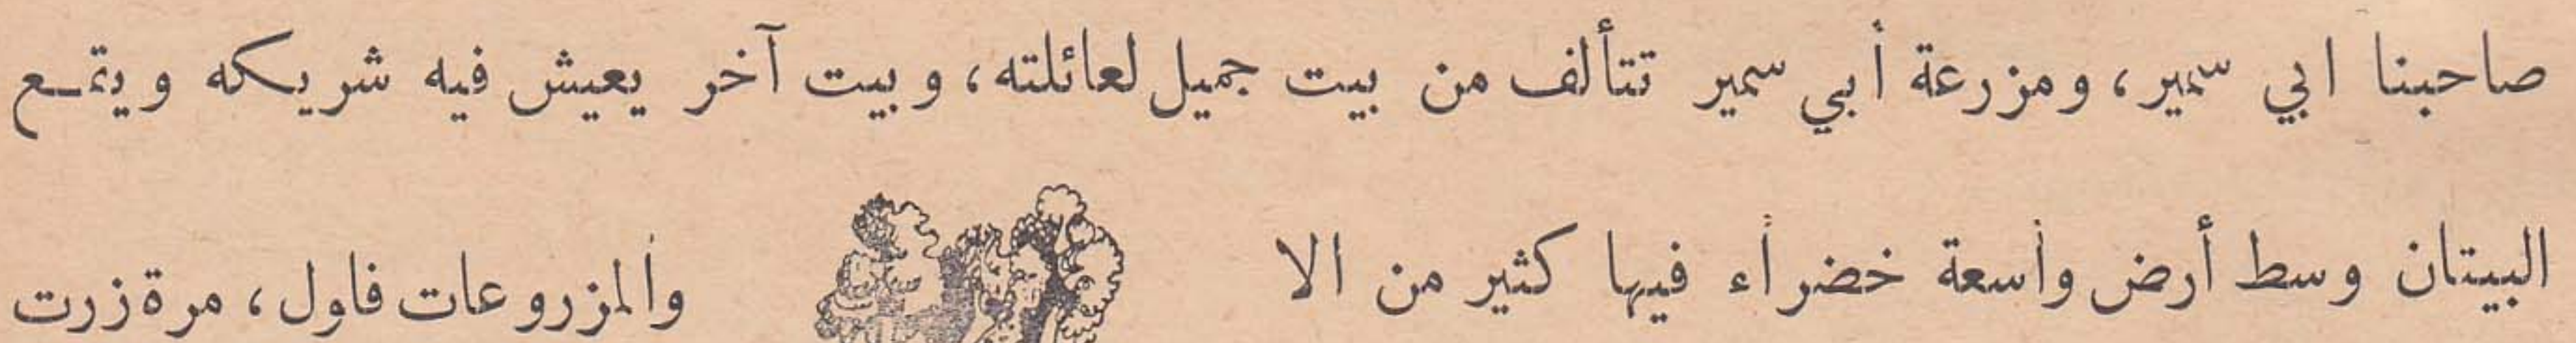 صاحبنا ابي سمير، ومزرعة أبي سمير تتألف من بيت جميل لعائلته، وبيت آخر يعيش فيه شريكه ويقع
البيتان وسط أرض واسعة خضراء فيها كثير من الا والمزروعات فاول، مرة زرت